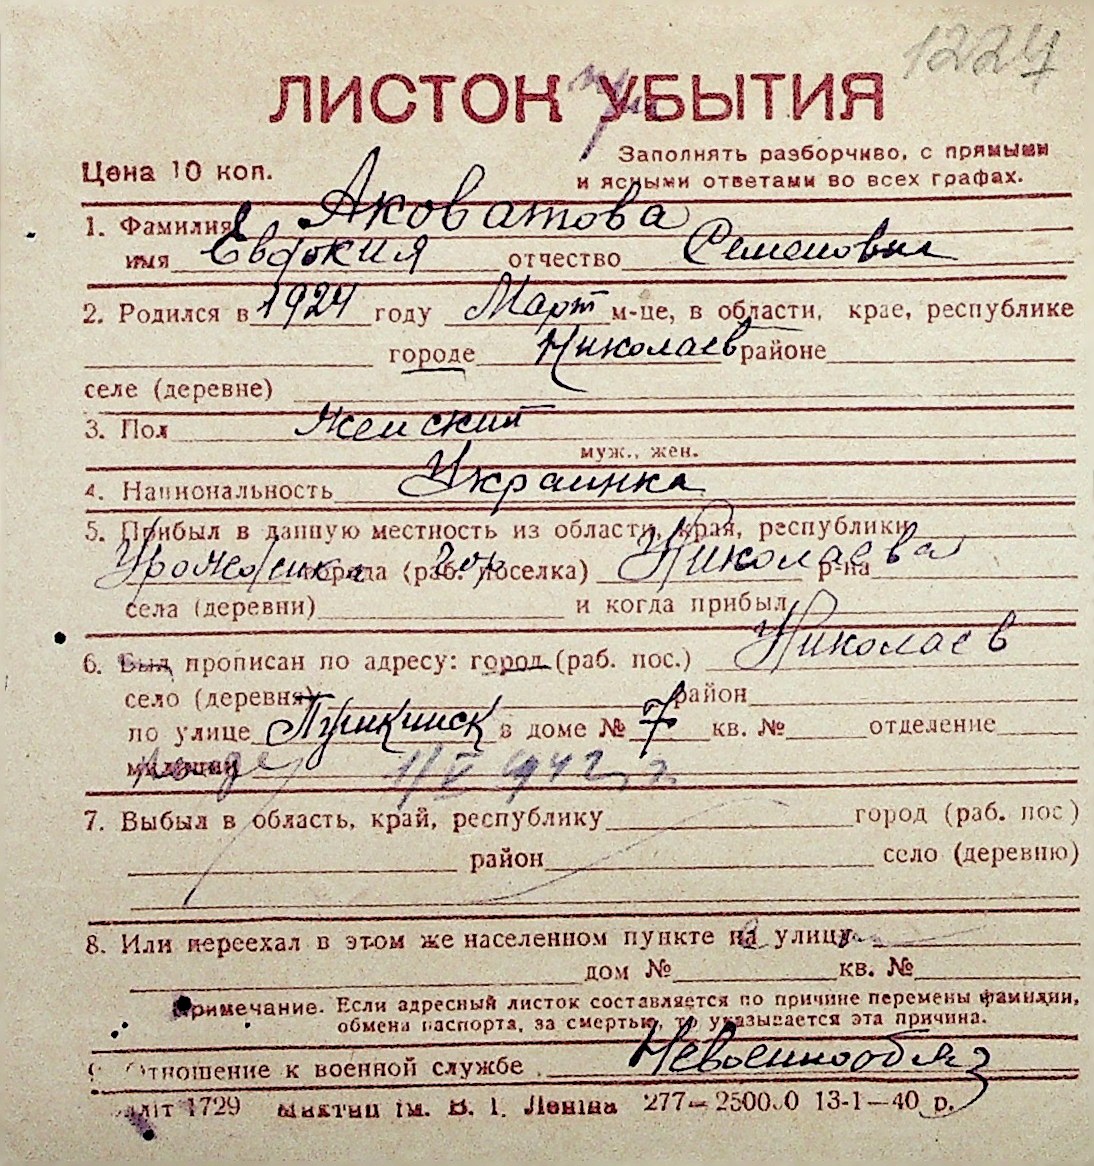 1224
ЛИСТОК УБЫТИЯ
при
Цена 10 коп.
Заполнять разборчиво, с прямыми
и ясными ответами во всех графах.
1. Фамилия Аковатова
имя Евдокия отчество Семеновна
2. Родился в 1924 году Март м-це, в области, крае, республике
городе Николаев районе
селе (деревне)
3. Пол женский
муж., жен.
4. Национальность Украинка
5. Прибыл в данную местность из области, края, республики
Урожденка гор города (раб. поселка) Николаева р-на
села (деревни) и когда прибыл
6. Был прописан по адресу: город (раб. пос.) Николаев
село (деревня) район
по улице Пушкинск в доме № 7 кв. № отделение
милиции 1/V 1942 г.
7. Выбыл в область, край, республику город (раб. пос.)
район село (деревню)
8. Или переехал в этом же населенном пункте на улицу
дом № кв. №
Примечание. Если адресный листок составляется по причине перемены фамилии,
обмена паспорта, за смертью, то указывается эта причина.
9. Отношение к военной службе Невоеннообяз
літ 1729 ім. В. І. Леніна 277—250000 13-1—40 р.